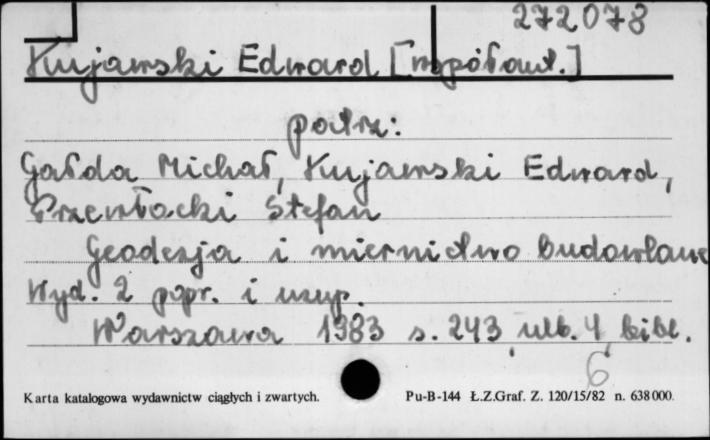 272078
Kujawski Edward [współaut.]
patrz:
Gałda Michał, Kujawski Edward,
Przewłocki Stefan
Geodezja i miernictwo budowlane
Wyd. 2 popr. i uzup.
Warszawa 1983 s. 243, nlb. 4, bibl.
6
Karta katalogowa wydawnictw ciągłych i zwartych. Pu-B-144 Ł.Z.Graf. Z. 120/15/82 n. 638000.